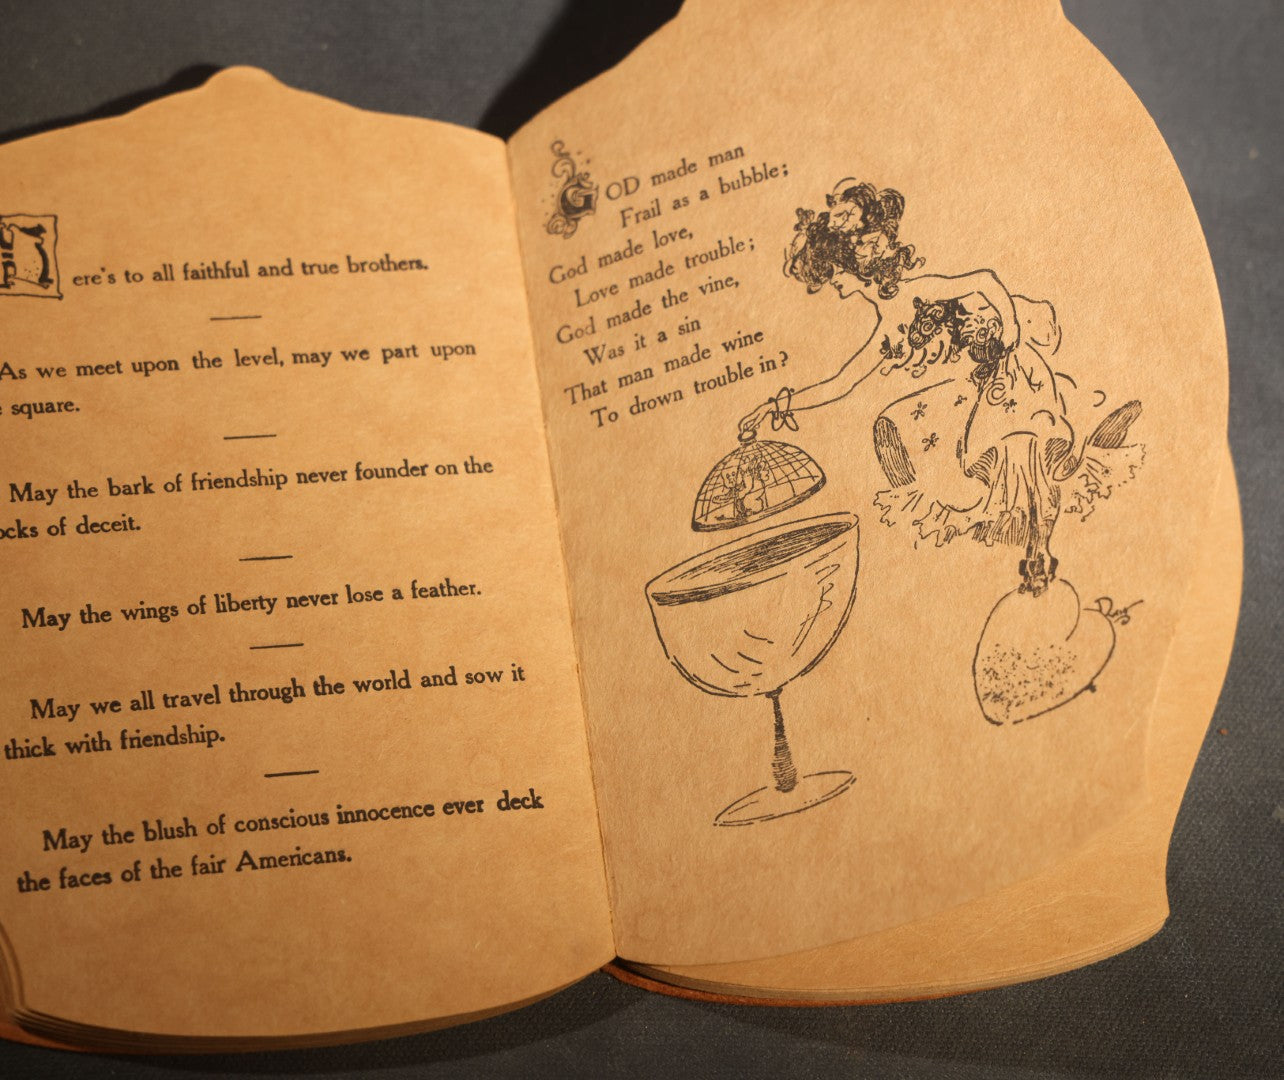 Here's to all faithful and true brothers.
As we meet upon the level, may we part upon
e square.
May the bark of friendship never founder on the
ocks of deceit.
May the wings of liberty never lose a feather.
May we all travel through the world and sow it
thick with friendship.
May the blush of conscious innocence ever deck
the faces of the fair Americans.
GOD made man
Frail as a bubble;
God made love,
Love made trouble;
God made the vine,
Was it a sin
That man made wine
To drown trouble in?